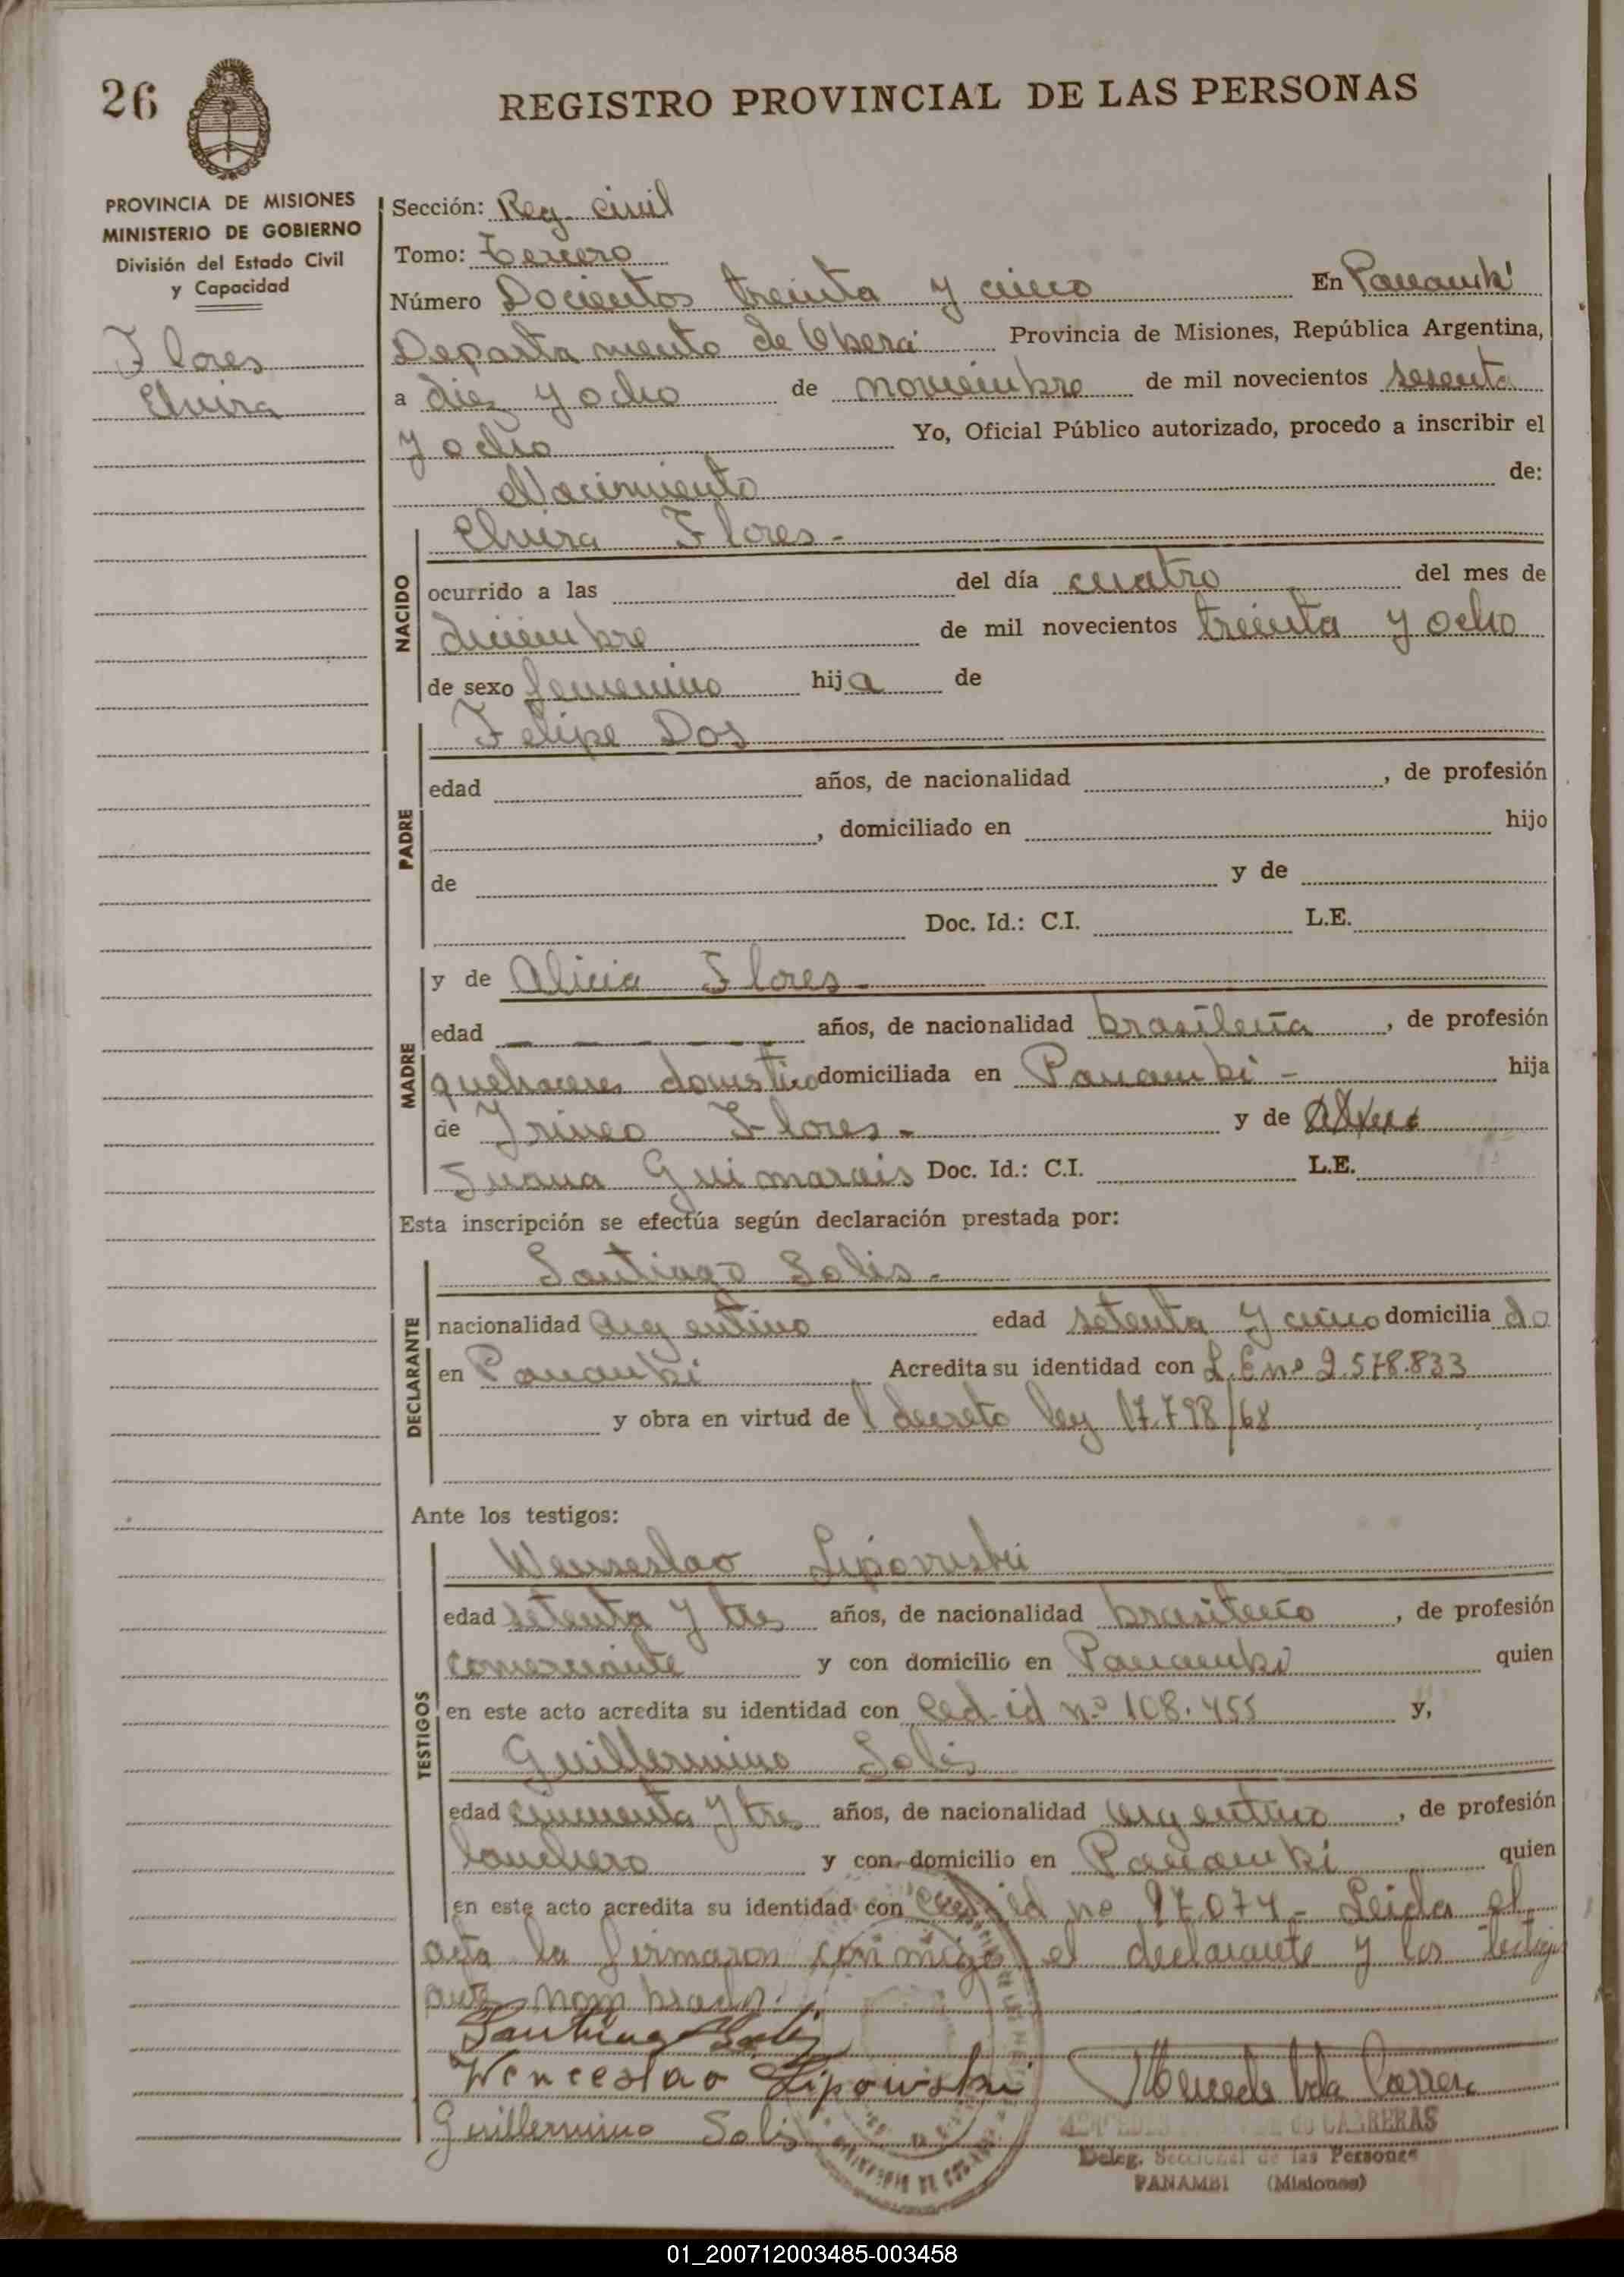 26
REGISTRO PROVINCIAL DE LAS PERSONAS
PROVINCIA DE MISIONES
MINISTERIO DE GOBIERNO
División del Estado Civil
y Capacidad
Flores
Elvira
Sección: Reg. civil
Tomo: Tercero
Número Docientos treinta y cinco En Panambi
Departamento de Oberá Provincia de Misiones, República Argentina,
a diez y ocho de noviembre de mil novecientos sesenta
y ocho Yo, Oficial Público autorizado, procedo a inscribir el
Nacimiento de:
NACIDO
Elvira Flores -
ocurrido a las del día cuatro del mes de
diciembre de mil novecientos treinta y ocho
de sexo femenino hija de
PADRE
Felipe Dos
edad años, de nacionalidad , de profesión
, domiciliado en hijo
de y de
Doc. Id.: C.I. L.E.
MADRE
y de Alicia Flores -
edad - - - - - años, de nacionalidad brasileña , de profesión
quehaceres domestico domiciliada en Panambi - hija
de Irineo Flores - y de
Juana Guimarais Doc. Id.: C.I. L.E.
Esta inscripción se efectúa según declaración prestada por:
DECLARANTE
Santiago Solis -
nacionalidad Argentino edad setenta y cinco domiciliado
en Panambi Acredita su identidad con L.E nº 2.578.833
y obra en virtud del decreto ley 17.798/68
Ante los testigos:
TESTIGOS
Wenseslao Lipowski
edad setenta y tres años, de nacionalidad brasileño , de profesión
comerciante y con domicilio en Panambi quien
en este acto acredita su identidad con Ced id nº 108.455 y,
Guillermino Solis
edad cincuenta y tres años, de nacionalidad argentino , de profesión
lanchero y con domicilio en Panambi quien
en este acto acredita su identidad con Ced id nº 97.074 - Leida el
acta la firmaron conmigo el declarante y los testigos
ante nombrados.
Santiago Solis
Wenceslao Lipowski
Guillermino Solis
de CABRERAS
Deleg. Seccional de las Personas
PANAMBI (Misiones)
01_200712003485-003458